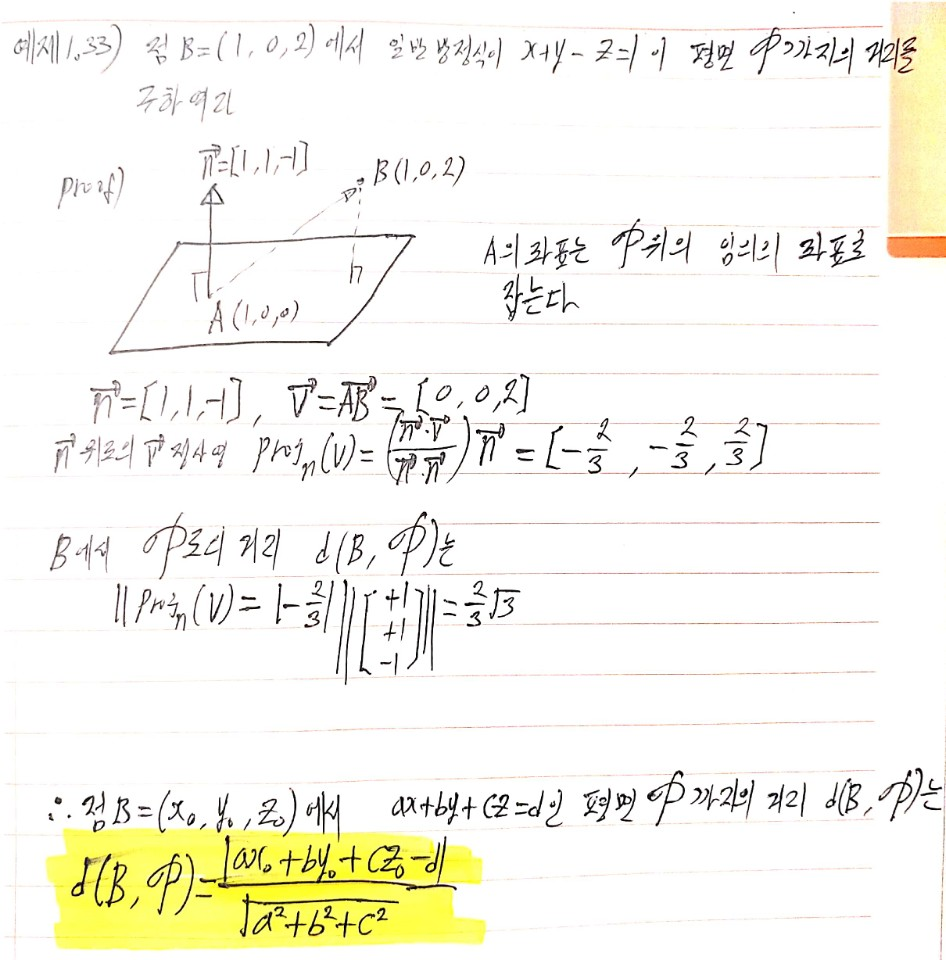 예제1.33) 점 B=(1, 0, 2) 에서 일반 방정식이 x+y-z=1 이 평면 𝒫까지의 거리를
구하여라
proof)
n⃗=[1,1,-1]
B(1,0,2)
A(1,0,0)
A의 좌표는 𝒫위의 임의의 좌표로
잡는다
n⃗=[1,1,-1], v⃗=AB⃗=[0,0,2]
n⃗위로의 v⃗ 정사영 Proj_n(v)=(n⃗·v⃗/n⃗·n⃗)n⃗ = [-2/3, -2/3, 2/3]
B에서 𝒫로의 거리 d(B, 𝒫)는
||Proj_n(v)= |-2/3| ||[+1 +1 -1]||=2/3√3
∴ 점B=(x₀, y₀, z₀)에서 ax+by+cz=d인 평면 𝒫까지의 거리 d(B, 𝒫)는
d(B, 𝒫)=|ax₀+by₀+cz₀-d|/√a²+b²+c²